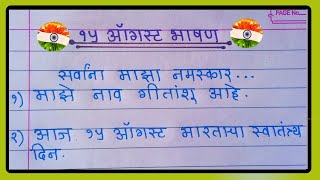 PAGE No.
१५ ऑगस्ट भाषण
सर्वांना माझा नमस्कार...
१) माझे नाव गीतांशू आहे.
२) आज १५ ऑगस्ट भारताचा स्वातंत्र्य
दिन.